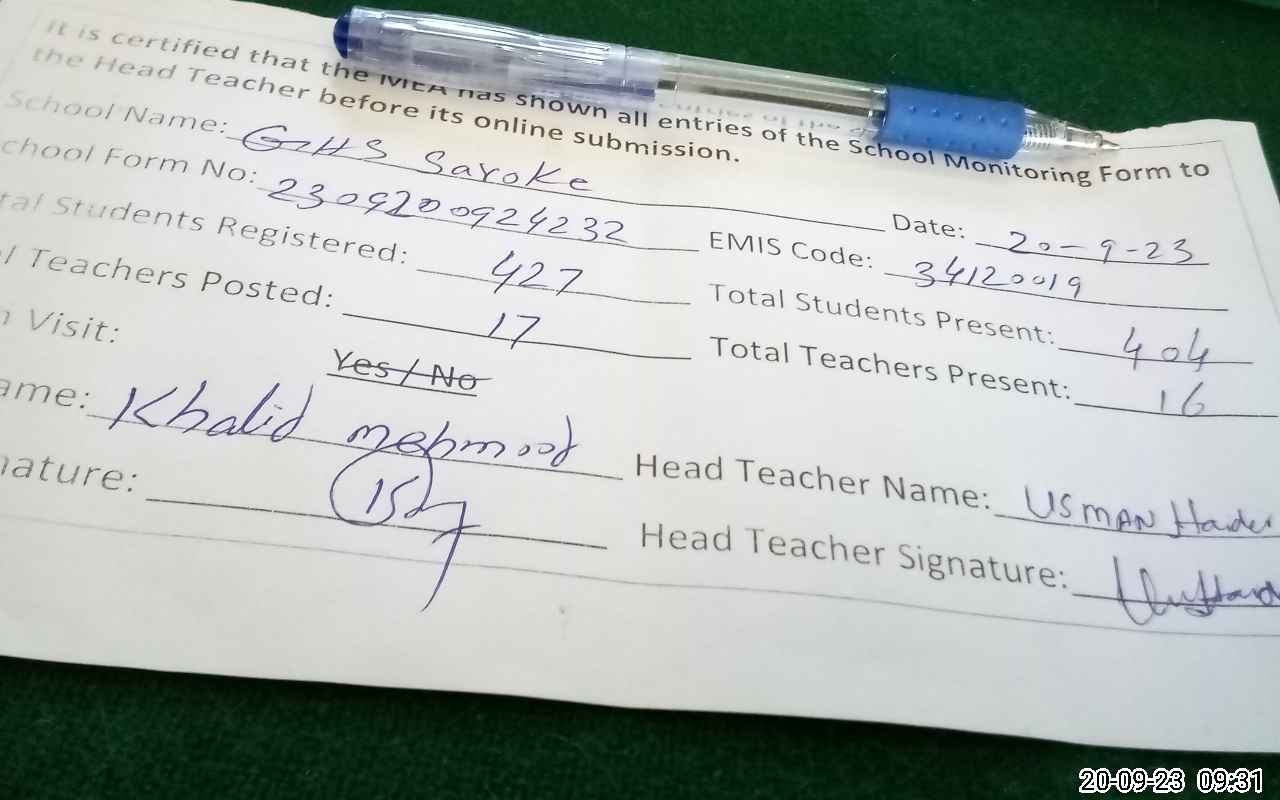 It is certified that the MEA has shown all entries of the School Monitoring Form to
the Head Teacher before its online submission.
School Name: GHS Saroke Date: 20-9-23
chool Form No: 2309200924232 EMIS Code: 34120019
tal Students Registered: 427 Total Students Present: 404
l Teachers Posted: 17 Total Teachers Present: 16
n Visit: Yes / No
ame: Khalid mehmood Head Teacher Name: USMAN Haider
nature: Head Teacher Signature:
20-09-23 09:31